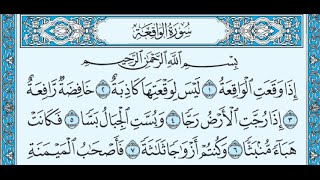 سُورَةُ الوَاقِعَةِ
بِسْمِ اللَّهِ الرَّحْمَٰنِ الرَّحِيمِ
إِذَا وَقَعَتِ الْوَاقِعَةُ ١ لَيْسَ لِوَقْعَتِهَا كَاذِبَةٌ ٢ خَافِضَةٌ رَافِعَةٌ
٣ إِذَا رُجَّتِ الْأَرْضُ رَجًّا ٤ وَبُسَّتِ الْجِبَالُ بَسًّا ٥ فَكَانَتْ
هَبَاءً مُنْبَثًّا ٦ وَكُنْتُمْ أَزْوَاجًا ثَلَاثَةً ٧ فَأَصْحَابُ الْمَيْمَنَةِ